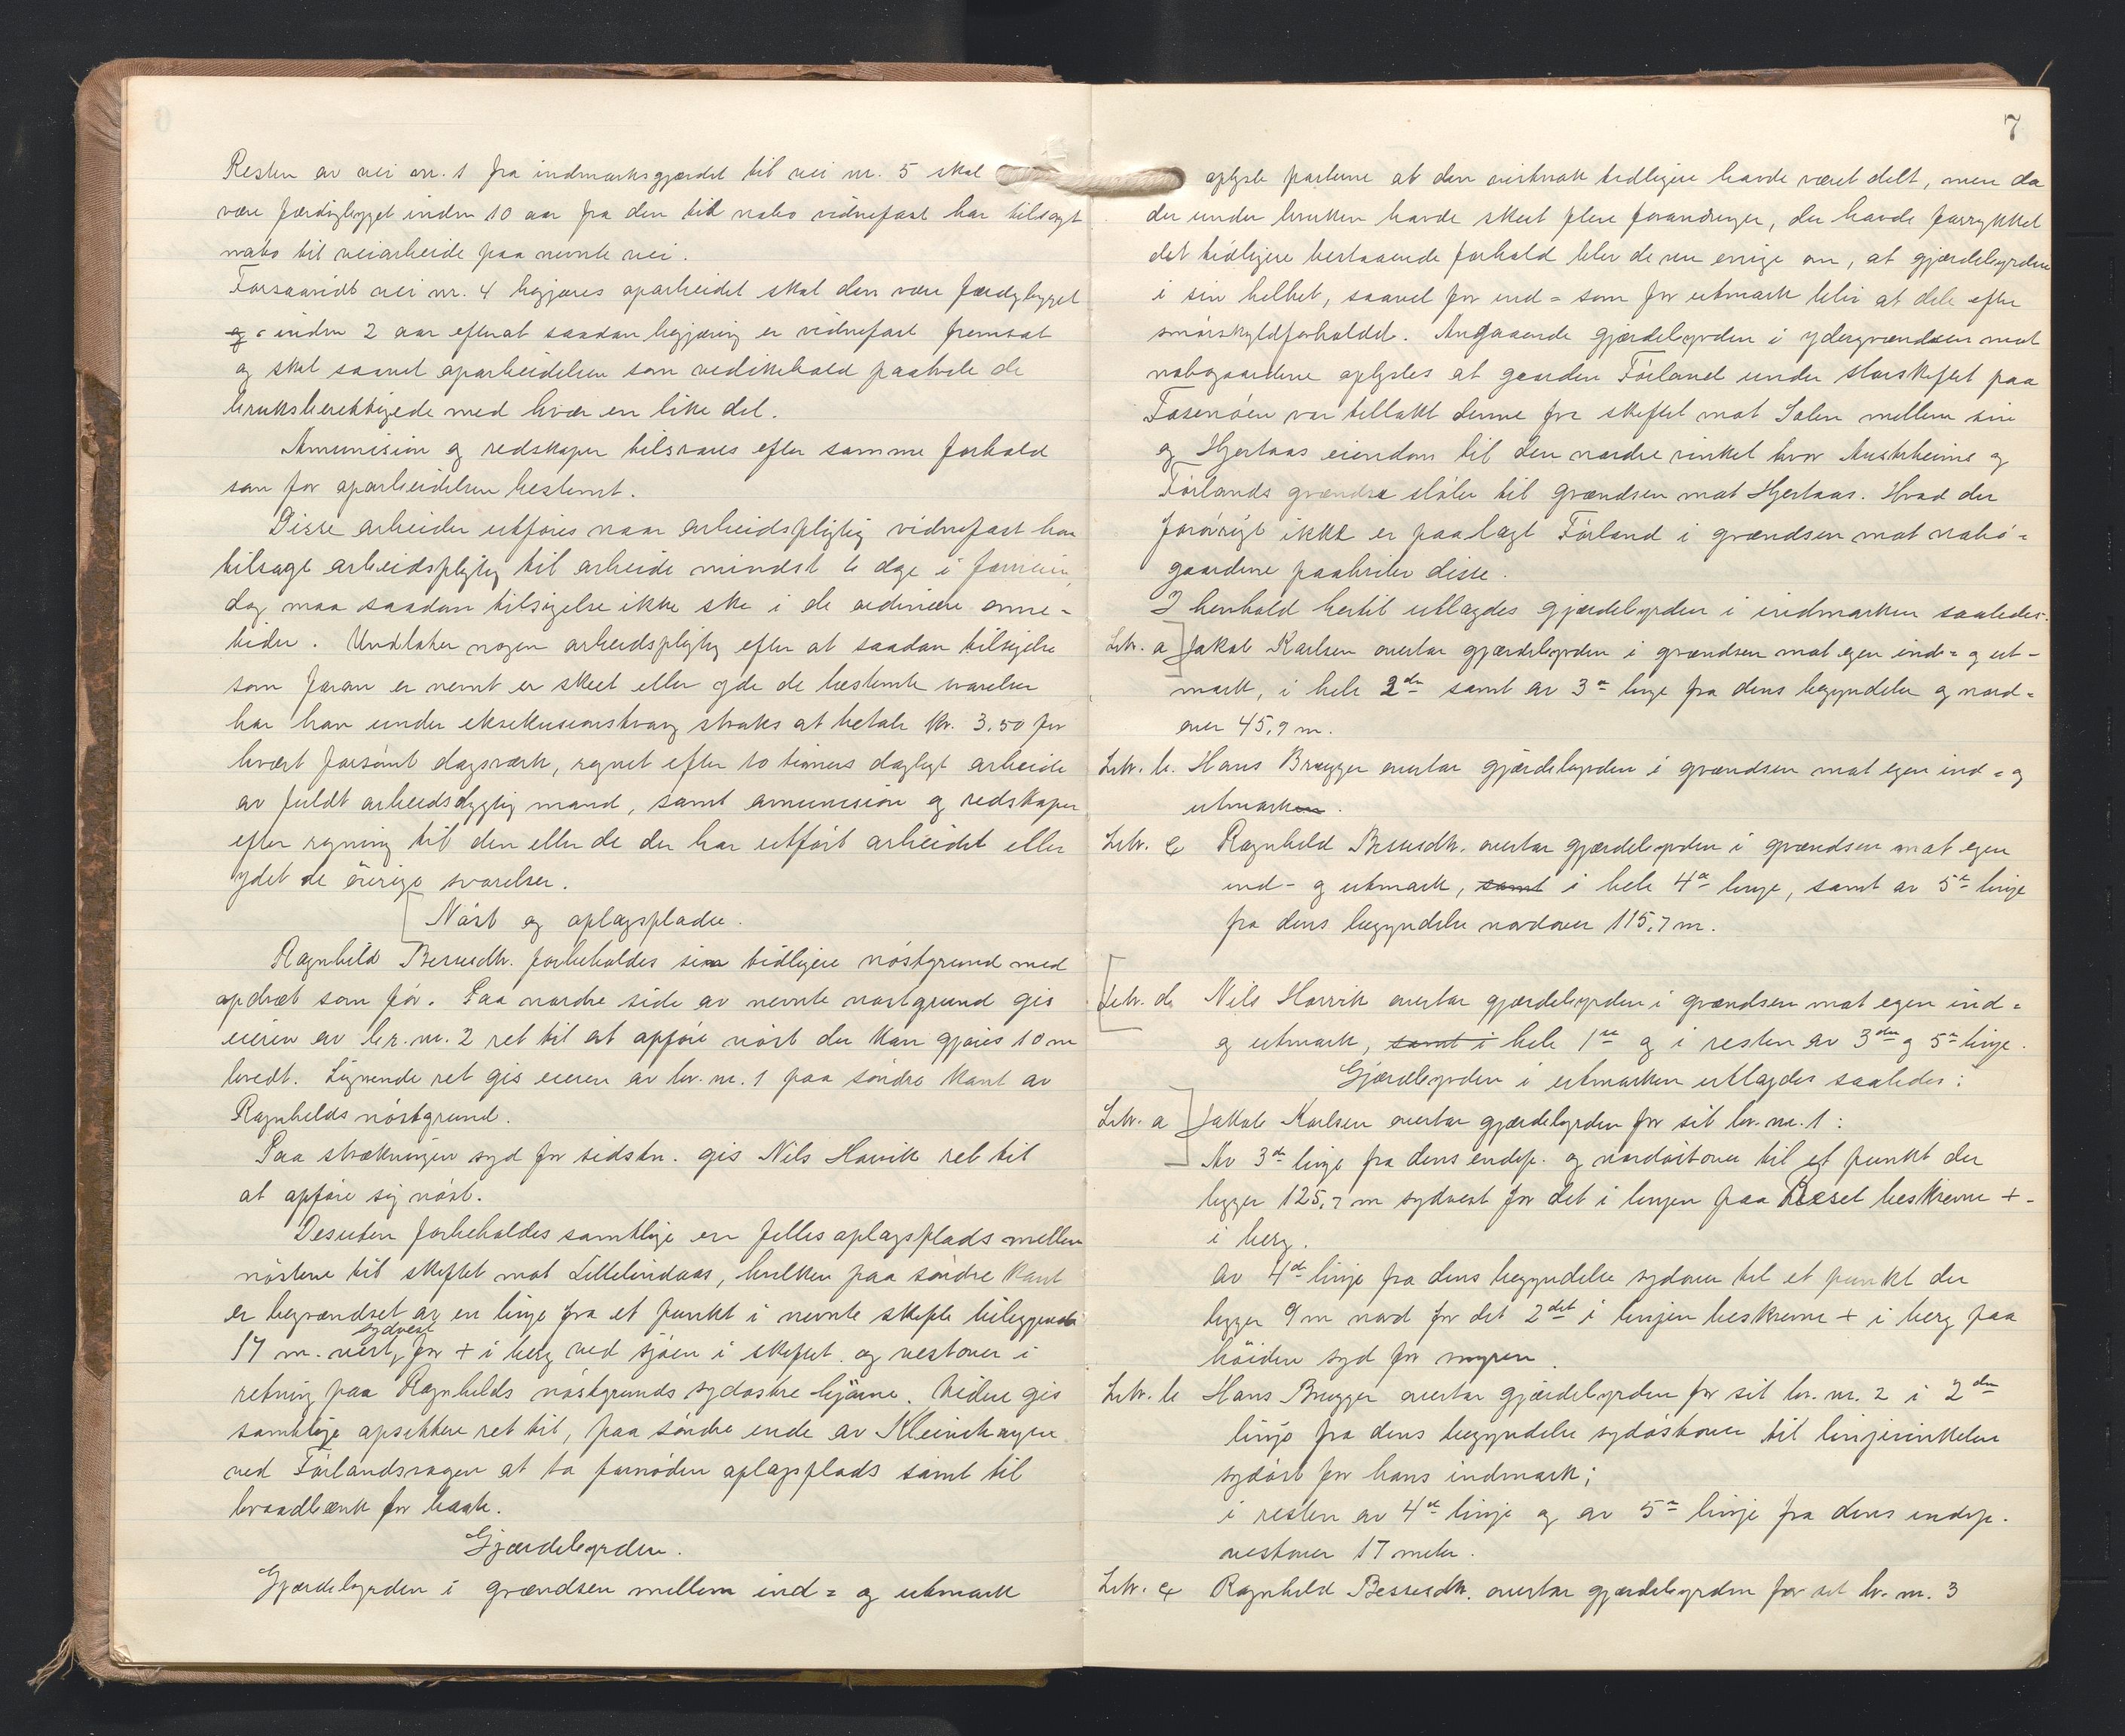 Resten av vei nr. 1 fra indmarksgjærdet til vei nr. 5 skal
være færdigbygget inden 10 aar fra den tid nabo vidnefast har tilsagt
nabo til veiarbeide paa nevnte vei.
Forsaavidt vei nr. 4 begjæres oparbeidet skal den være færdigbygget
inden 2 aar efterat saadan begjæring er vidnefast fremsat
og skal saavel oparbeidelsen som vedlikehold paahvile de
bruksberettigede med hver en like del.
Amunision og redskaper tilsvares efter samme forhold
som for oparbeidelsen bestemt.
Disse arbeider utføres naar arbeidspligtig vidnefast har
tilsagt arbeidspligtig til arbeide mindst 6 dage i forveien,
dog maa saadan tilsigelse ikke ske i de ordinære onne-
tider. Undlater nogen arbeidspligtig efter at saadan tilsigelse
som foran er nevnt er skeet eller yde de bestemte svarelser
har han under eksekusionstvang straks at betale kr. 3,50 for
hvært forsømt dagsværk, regnet efter 10 timers dagligt arbeide
av fuldt arbeidsdygtig mand, samt amunision og redskaper
efter regning til den eller de der har utført arbeidet eller
ydet de øvrige svarelser.
Nøst og oplagspladse.
Ragnhild Bessesdtr. forbeholdes sin tidligere nøstgrund med
opdræt som før. Paa nordre side av nevnte nøstgrund gis
eieren av br. nr. 2 ret til at opføre nøst der kan gjøres 10 m
bredt. Lignende ret gis eieren av br. nr. 1 paa søndre kant av
Ragnhilds nøstgrund.
Paa strækningen syd for sidstn. gis Nils Havvik ret til
at opføre sig nøst.
Desuten forbeholdes samtlige en felles oplagsplads mellem
nøstene til skiftet mot Lillelindaas, hvilken paa søndre kant
er begrændset av en linje fra et punkt i nevnte skifte beliggende
17 m. sydvest for + i berg ved sjøen i skiftet og vestover i
retning paa Ragnhilds nøstgrunds sydøstre hjørne. Videre gis
samtlige opsittere ret til, paa søndre ende av Kleivehagen
ved Førlandsvaagen at ta fornøden oplagsplads samt til
braadbænk for baat.
Gjærdebyrden.
Gjærdebyrden i grændsen mellem ind= og utmark
7
oplyste parterne at den vistnok tidligere havde været delt, men da
der under bruken havde skeet flere forandringer, der havde forrykket
det tidligere bestaaende forhold blev de nu enige om, at gjærdebyrden
i sin helhet, saavel for ind= som for utmark blir at dele efter
smørskyldforholdet. Angaaende gjærdebyrden i ydergrændsen mot
nabogaardene oplystes at gaarden Førland under storskiftet paa
Fosenøen var tillakt denne fra skiftet mot Solen mellem sin
og Hjertaas eiendom til den nordre vinkel hvor Austrheims og
Førlands grændse støter til grændsen mot Hjertaas. Hvad der
forøvrigt ikke er paalagt Førland i grændsen mot nabo=
gaardene paahviler disse.
I henhold hertil utlagdes gjærdebyrden i indmarken saaledes:
Litr. a Jakob Karlsen overtar gjærdebyrden i grændsen mot egen ind= og ut-
mark, i hele 2den samt av 3e linje fra dens begyndelse og nord=
over 45,9 m.
Litr. b. Hans Brugger overtar gjærdebyrden i grændsen mot egen ind= og
utmarken.
Litr. c Ragnhild Bessesdtr. overtar gjærdebyrden i grændsen mot egen
ind- og utmark, samt i hele 4e linje, samt av 5te linje
fra dens begyndelse nordover 115,7 m.
Litr. d. Nils Havvik overtar gjærdebyrden i grændsen mot egen ind=
og utmark, samt i hele 1ste og i resten av 3die og 5te linje.
Gjærdebyrden i utmarken utlagdes saaledes:
Litr. a Jakob Karlsen overtar gjærdebyrden for sit br. nr. 1:
Av 3die linje fra dens endep. og nordøstover til et punkt der
ligger 125,7 m sydvest for det i linjen paa Beset beskrevne +
i berg.
Av 4de linje fra dens begyndelse sydover til et punkt der
ligger 9 m nord for det 2det i linjen beskrevne + i berg paa
høiden syd for myren.
Litr. b Hans Brugger overtar gjærdebyrden for sit br. nr. 2 i 2den
linje fra dens begyndelse sydøstover til linjevinkelen
sydøst for hans indmark;
i resten av 4de linje og av 5te linje fra dens endep.
vestover 17 meter.
Litr. c Ragnhild Bessesdtr. overtar gjærdebyrden for sit br. nr. 3